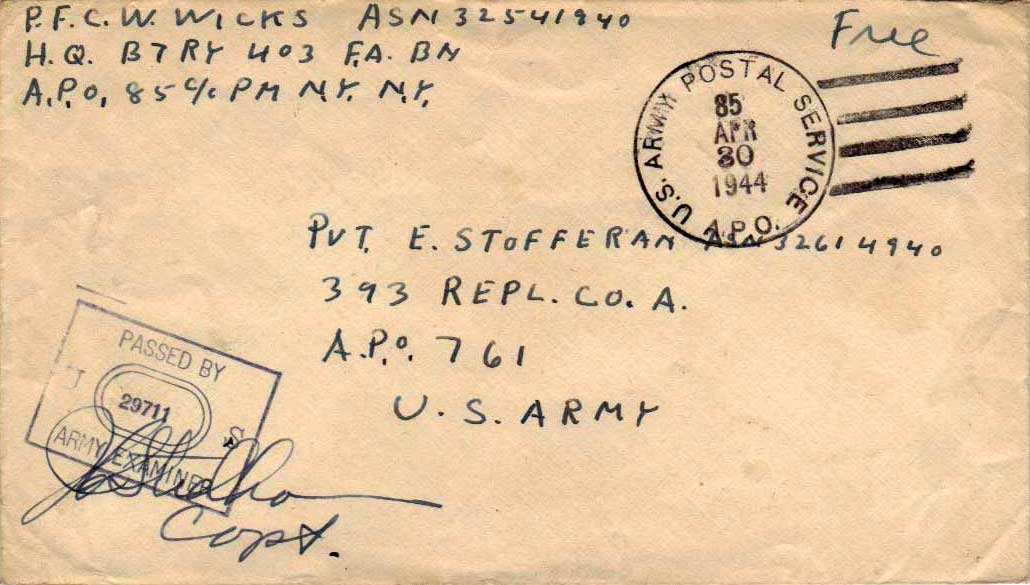 P.F.C. W. WICKS ASN 32541940
H.Q. BTRY 403 F.A. BN
A.P.O. 85 c/o PM N.Y. N.Y.
Free
U.S. ARMY POSTAL SERVICE
85
APR
30
1944
A.P.O.
PVT. E. STOFFERAN ASN 32614940
393 REPL. CO. A.
A.P.O. 761
U.S. ARMY
PASSED BY
U S
29711
ARMY EXAMINER
Capt.